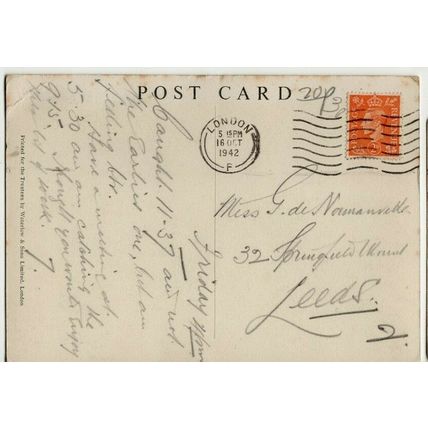 POST CARD
20p
LONDON
5 15 PM
16 OCT
1942
F
Friday
Caught 11-37 am not
the Earliest one, but am
feeling btr.
Have a meeting at
5-30 and am catching the
9-45. thought you would enjoy
this bit of work.
Miss G. de Normanville
32 Springfield Mount
Leeds.
2.
Printed for the Trustees by Waterlow & Sons Limited, London